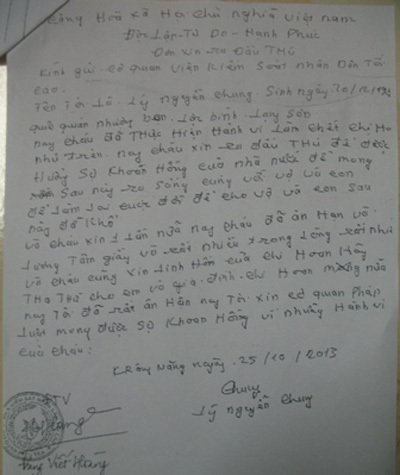 Cộng Hoà xã Hạ chủ nghĩa việt nam
Độc Lập-Tự Do-Hạnh Phúc
Đơn xin ra Đầu Thú
Kính gửi: cơ quan viện Kiểm Soát nhân Dân Tối
cao.
Tên Tôi là. Lý nguyễn chung. Sinh ngày
quê quán
nay cháu đã Thực Hiện Hành vi Làm chết chị Ho
như Trên. nay cháu xin ra đầu THú để được
Hưởng Sự Khoan Hồng của nhà nước để mong
Sau này ra Sống cùng với vợ và con
để Làm Lại cuộc đời để cho vợ và con sau
này đỡ Khổ
và cháu xin 1 Lần nữa nay cháu đã ân Hận vô
Lương Tâm giầy vò rất nhiều trong Lòng rất nhiều
và cháu cũng xin Linh Hồn của chị Hoan Hãy
THa THứ cho em và gia-đình-chị Hoan mong nữa
nay Tôi đã rất ân Hận nay Tôi xin cơ quan Pháp
Luật mong được Sự Khoan Hồng vì những Hành vi
của cháu:
KRông Năng ngày. 25/10/2013
ĐTV
chung
Lý nguyễn chung
Việt Hoàng